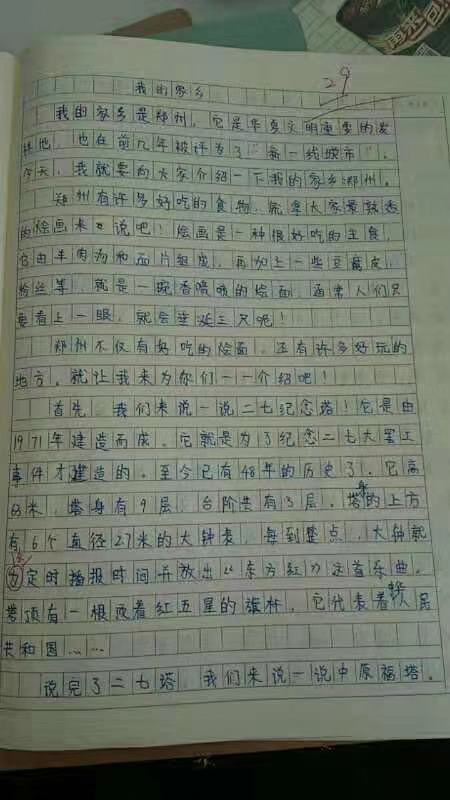 再来一包
29
我的家乡
我的家乡是郑州，它是华夏文明重要的发
祥地，也在前几年被评为了“新一线城市”。
今天，我就要向大家介绍一下我的家乡郑州。
郑州有许多好吃的食物，就拿大家最熟悉
的烩画来说吧！烩画是一种很好吃的主食，
它由羊肉汤和面片组成，再加上一些豆腐皮、
粉丝等，就是一碗香喷喷的烩面，通常人们只
要看上一眼，就会垂涎三尺呢！
郑州不仅有好吃的烩面，还有许多好玩的
地方，就让我来为你们一一介绍吧！
首先，我们来说一说二七纪念塔！它是由
1971年建造而成，它就是为了纪念二七大罢工
事件才建造的，至今已有48年的历史了！它高
63米，塔身有9层，台阶共有3层，塔身的上方
有6个直径2.7米的大钟表，每到整点，大钟就
为定时播报时间并放出“东方红”这首乐曲。
塔顶有一根顶着红五星的旗杆，它代表着人民
共和国……
说完了二七塔，我们来说一说中原福塔。